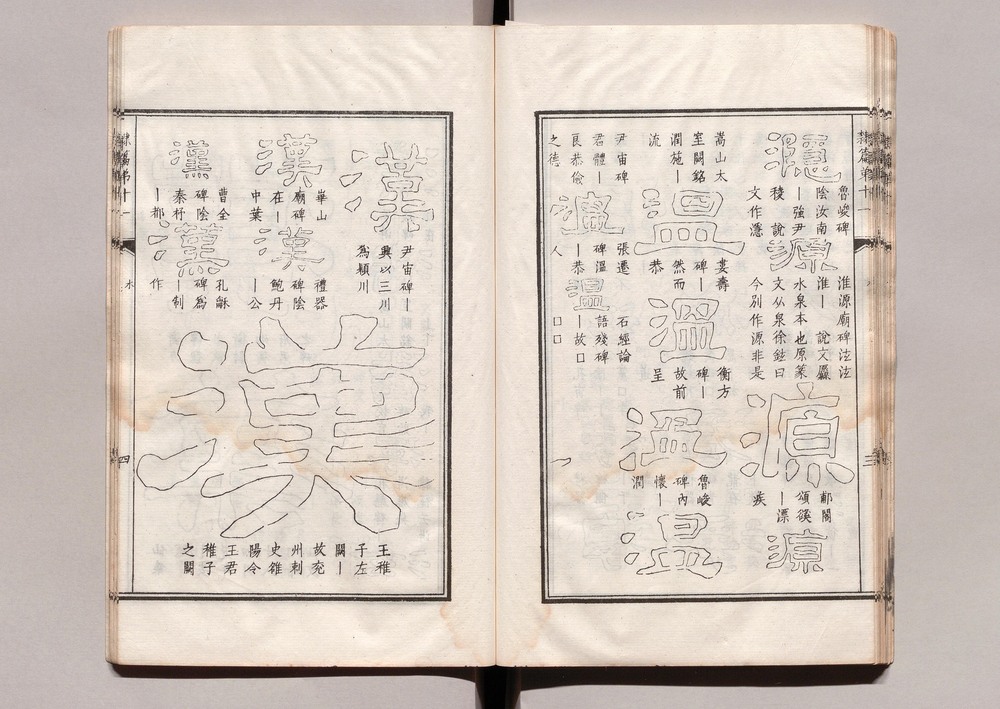 隸篇第十一
三
濦
魯峻碑
陰汝南
｜強尹
說
文作濦
源
淮源廟碑泫泫
淮｜ 說文厵
水泉本也原篆
文从泉徐鉉曰
今別作源非是
源
郙閣
頌
｜漂
疾
源
嵩山太
室闕銘
潤施｜
流
溫
婁壽
碑｜
然而
恭
溫
衡方
碑｜
故前
呈
溫
魯峻
碑內
懷｜
潤
溫
尹宙碑
君體｜
良恭儉
之德
溫
張遷
碑溫
｜恭
人
溫
石經論
語殘碑
｜故口
口口
漢
尹宙碑｜
興以三川
爲穎川
漢
崋山
廟碑
在｜
中葉
漢
禮器
碑陰
鮑丹
｜公
漢
曹全
碑陰
秦杼
｜都
漢
孔龢
碑爲
｜制
作
漢
王稚
子左
闕｜
故兖
州刺
史雒
陽令
王君
稚子
之闕
隸篇第十一
水
四